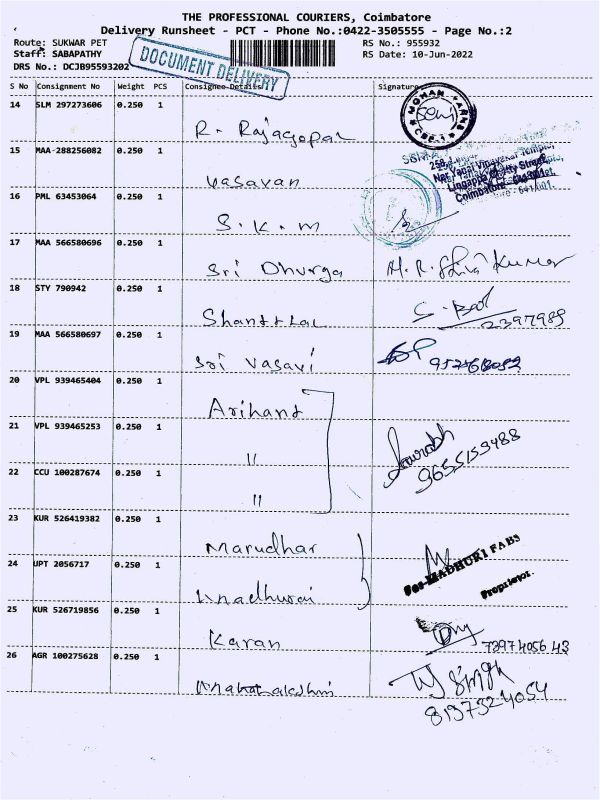 THE PROFESSIONAL COURIERS, Coimbatore
Delivery Runsheet - PCT - Phone No.:0422-3505555 - Page No.:2
Route: SUKWAR PET RS No.: 955932
Staff: SABAPATHY RS Date: 10-Jun-2022
DRS No.: DCJB95593202
DOCUMENT DELIVERY
S No Consignment No Weight PCS Consignee Details Signature
14 SLM 297273606 0.250 1
R. Rajagopal
15 MAA-288256082 0.250 1
Vasavan
Nar Yagal Vinayakar Temple,
Lingappa Chetty Street,
Coimbatore - 641 001.
16 PML 63453064 0.250 1
S. K. m
17 MAA 566580696 0.250 1
Sri Dhurga
18 STY 790942 0.250 1
2397989
19 MAA 566580697 0.250 1
Sri Vasavi
20 VPL 939465404 0.250 1
Arihant
21 VPL 939465253 0.250 1
"
Sourabh
9655153488
22 CCU 100287674 0.250 1
"
23 KUR 526419382 0.250 1
Marudhar
24 JPT 2056717 0.250 1
For MADHURI FABS
Proprietor.
25 KUR 526719856 0.250 1
Karan
7397405643
26 AGR 100275628 0.250 1
Singh
8197324054